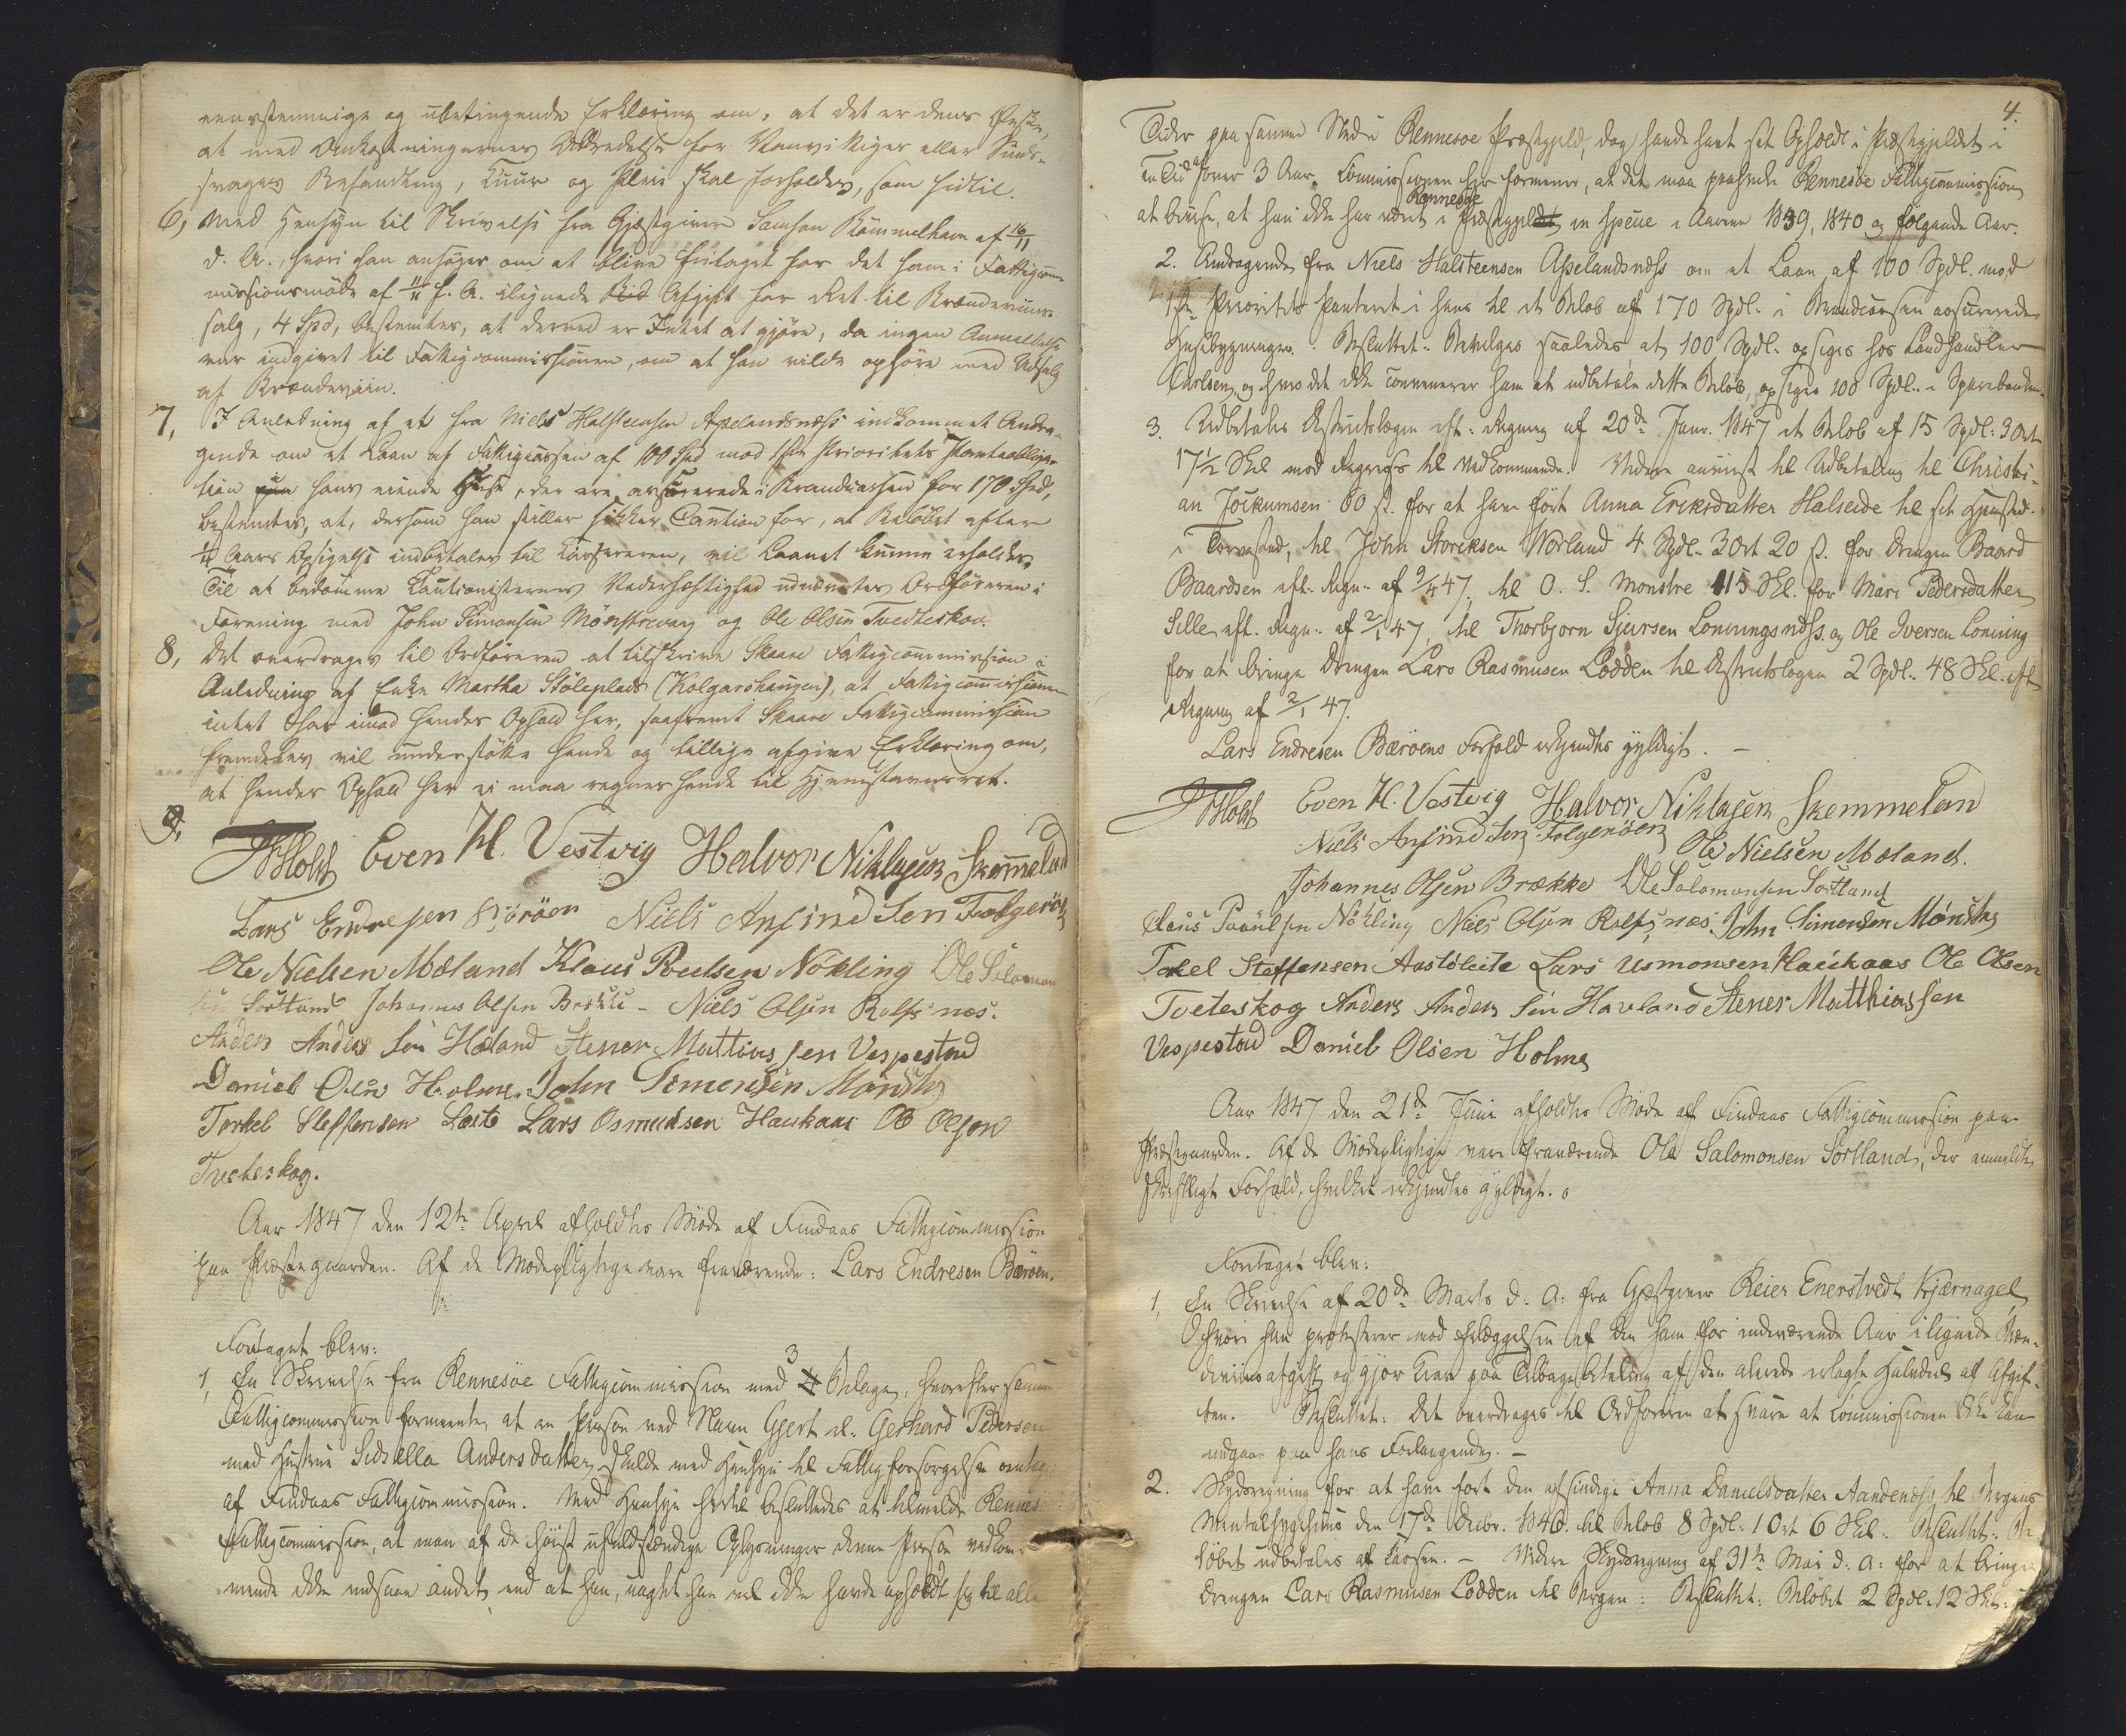 eenstemmige og ubetingende Erklæring om, at det er dens Ønske,
at med Omkostningernes Udredelse for Vanvittiges eller Sinds-
svages Behandling, Cuur og Pleie skal forholdes, som hidtil.
6, Med Hensyn til Skrivelse fra Gjæstgiver Samson Rømmelhavn af 16/11
d. A., hvori han ansøger om at blive fritaget for det ham i Fattigcom-
missionsmøde af 11/11 f. A. ilignede Afgift for Ret til Brændeviins-
salg, 4 Spd, bestemtes, at derved er Intet at gjøre, da ingen Anmeldelse
var indgivet til Fattigcommissionen, om at han vilde ophøre med Udsalg
af Brændeviin.
7, I Anledning af et fra Niels Halsteensen Apelandsnæss indkommet Andra-
gende om et Laan af Fattigcassen af 100 Spd mod 1ste Prioritets Panteobliga-
tion hans eiende Huse, der ere assurerede i Brandcassen for 170 Spd,
bestemtes, at, dersom han stiller sikker Caution for, at Beløbet efter
1/4 Aars Opsigelse indbetales til Cassereren, vil Laanet kunne erholdes.
Til at bedømme Cautionisternes Vederhæftighed udnævntes Ordføreren i
Forening med John Simonsen Mønstrevaag og Ole Olsen Tvedteskov.
8, Det overdrages til Ordføreren at tilskrive Skaare Fattigcommission i
Anledning af Enke Martha Støleplads (Kolgarshaugen), at Fattigcommissionen
intet har imod hendes Ophold her, saafremt Skaare Fattigcommission
fremdeles vil understøtte hende og tillige afgive Erklæring om,
at hendes Ophold her ei maa regnes hende til Hjemstavnsret.
9,
Holst Even H. Vestvig Halvor Niklasen Skemmeland
Lars Endresen Børøen Niels Anfindsen Folgerøen
Ole Nielsen Mæland Klaus Poulsen Nøkling Ole Salomon
sen Sortland Johannes Olsen Brække - Niels Olsen Rolfsnæs.
Anders Anders sen Hæland Stener Mattiassen Vespestad
Daniel Olsen Holme. John Simonsen Mønster
Torkel Steffensen Løite Lars Osmundsen Haukaas Ole Olson
Tveteskog.
Aar 1847 den 12te April afholdtes Møde af Findaas Fattigcommission
paa Præstegaarden. Af de Mødepligtige vare fraværende: Lars Endresen Børøen.
Foretaget blev:
1, En Skrivelse fra Rennesøe Fattigcommission med 3 Bilage, hvorefter samme
Fattigcommission formeente, at en Person ved Navn Gjert el. Gerhard Pedersen
med Hustrue Sidsella Andersdatter skulde med Hensyn til Fattigforsørgelse
af Findaas Fattigcommission. Med Hensyn hertil besluttedes at tilmelde Rennes
Fattigcommission, at man af de høist ufuldstændige Oplysninger denne Person vedkom-
mende ikke indsaae andet, end at han, uagtet han vel ikke havde opholdt sig til alle
4.
Tider paa samme Sted i Rennesøe Præstegjeld, dog havde havt sit Ophold i Præstegjeldet i
en Tid af over 3 Aar. Commissionen her formener, at det maa paahvile Rennesøe Fattigcommission
at bevise, at han ikke har været i Rennesøe Præstegjeld en Speue i Aarene 1839, 1840 og følgende Aar.
2. Andragende fra Niels Halsteensen Apelandsnæss om et Laan af 100 Spdl. mod
1ste Prioritets Panteret i hans til et Beløb af 170 Spdl. i Brandcassen assurerede
Huusbygninger. Besluttet: Bevilges saaledes, at 100 Spdl. opsiges hos Landhandler
Carlsen, og hvis det ikke convenerer ham at udbetale dette Beløb, opsiges 100 Spdl. i Sparebanken.
3. Udbetales Districtslægen eft. Regning af 20de Janr. 1847 et Beløb af 15 Spdl. 3 Ort
17 1/2 Skil mod Regress til Vedkommende. Videre anviist til Udbetaling til Christi-
an Jockumsen 60 s. for at have ført Anna Eriksdatter Halseide til sit Hjemsted
i Torvestad, til John Storeksen Worland 4 Spdl. 3 Ort 20 s. for Drengen Baard
Baardsen eft. Regn. af 9/4 47, til O. S. Monstre 115 Sk. for Mari Pedersdatter
Lille eft. Regn. af 2/1 47, til Thorbjorn Sjursen Lonningsnæss og Ole Iversen Lonning
for at bringe Drengen Lars Rasmusen Lodden til Districtslægen 2 Spdl. 48 Sk. eft
Regning af 2/1 47.
Lars Endresen Børøens Forfald erkjendtes gyldigt. —
Holst Even H. Vestvig Halvor Niklasen Skemmelan
Niels Anfindsen Folgerøen Ole Nielsen Mæland.
Johannes Olsen Brække Ole Salomonsen Sortland
Claus Paaulsen Nökling Niels Olsen Rolfsnæs. John Simonsen Mønster
Tokel Steffensen Aastøleite Lars Usmonsen Haukaas Ole Olsen
Tveteskog Anders Anders sen Havland Stener Matthiassen
Vespestad Daniel Olsen Holme
Aar 1847 den 21de Juni afholdtes Møde af Findaas Fattigcommission paa
Præstegaarden. Af de Mødepligtige vare fraværende Ole Salomonsen Sørtland, der anmeldte
skriftligt Forfald, hvilket erkjendtes gyldigt.
Foretaget blev:
1, En Skrivelse af 20de Marts d. A. fra Gjæstgiver Reier Enerstvedt Kjærnagel
hvori han protesterer mod Erlæggelsen af den ham for indeværende Aar ilignede Bræn-
deviinsafgift og gjør Krav paa Tilbagebetaling af den alerede erlagte Halvdeel af Afgif-
ten. Besluttet: Det overdrages til Ordføreren at svare at Commissionen ikke kan
indgaae paa hans Forlangende. —
2. Skydsregning for at have ført den afsindige Anna Danielsdatter Aandenæss til Bergens
Mentalsygehuus den 17de Decbr. 1846. til Beløb 8 Spdl. 1 Ort 6 Skil. Besluttet: Be
løbet udbetales af Cassen. — Videre Skydsregning af 31te Mai d. A. for at bringe
Drengen Lars Rasmusen Lodden til Bergen: Besluttet: Beløbet 2 Spdl. 12 Sk.